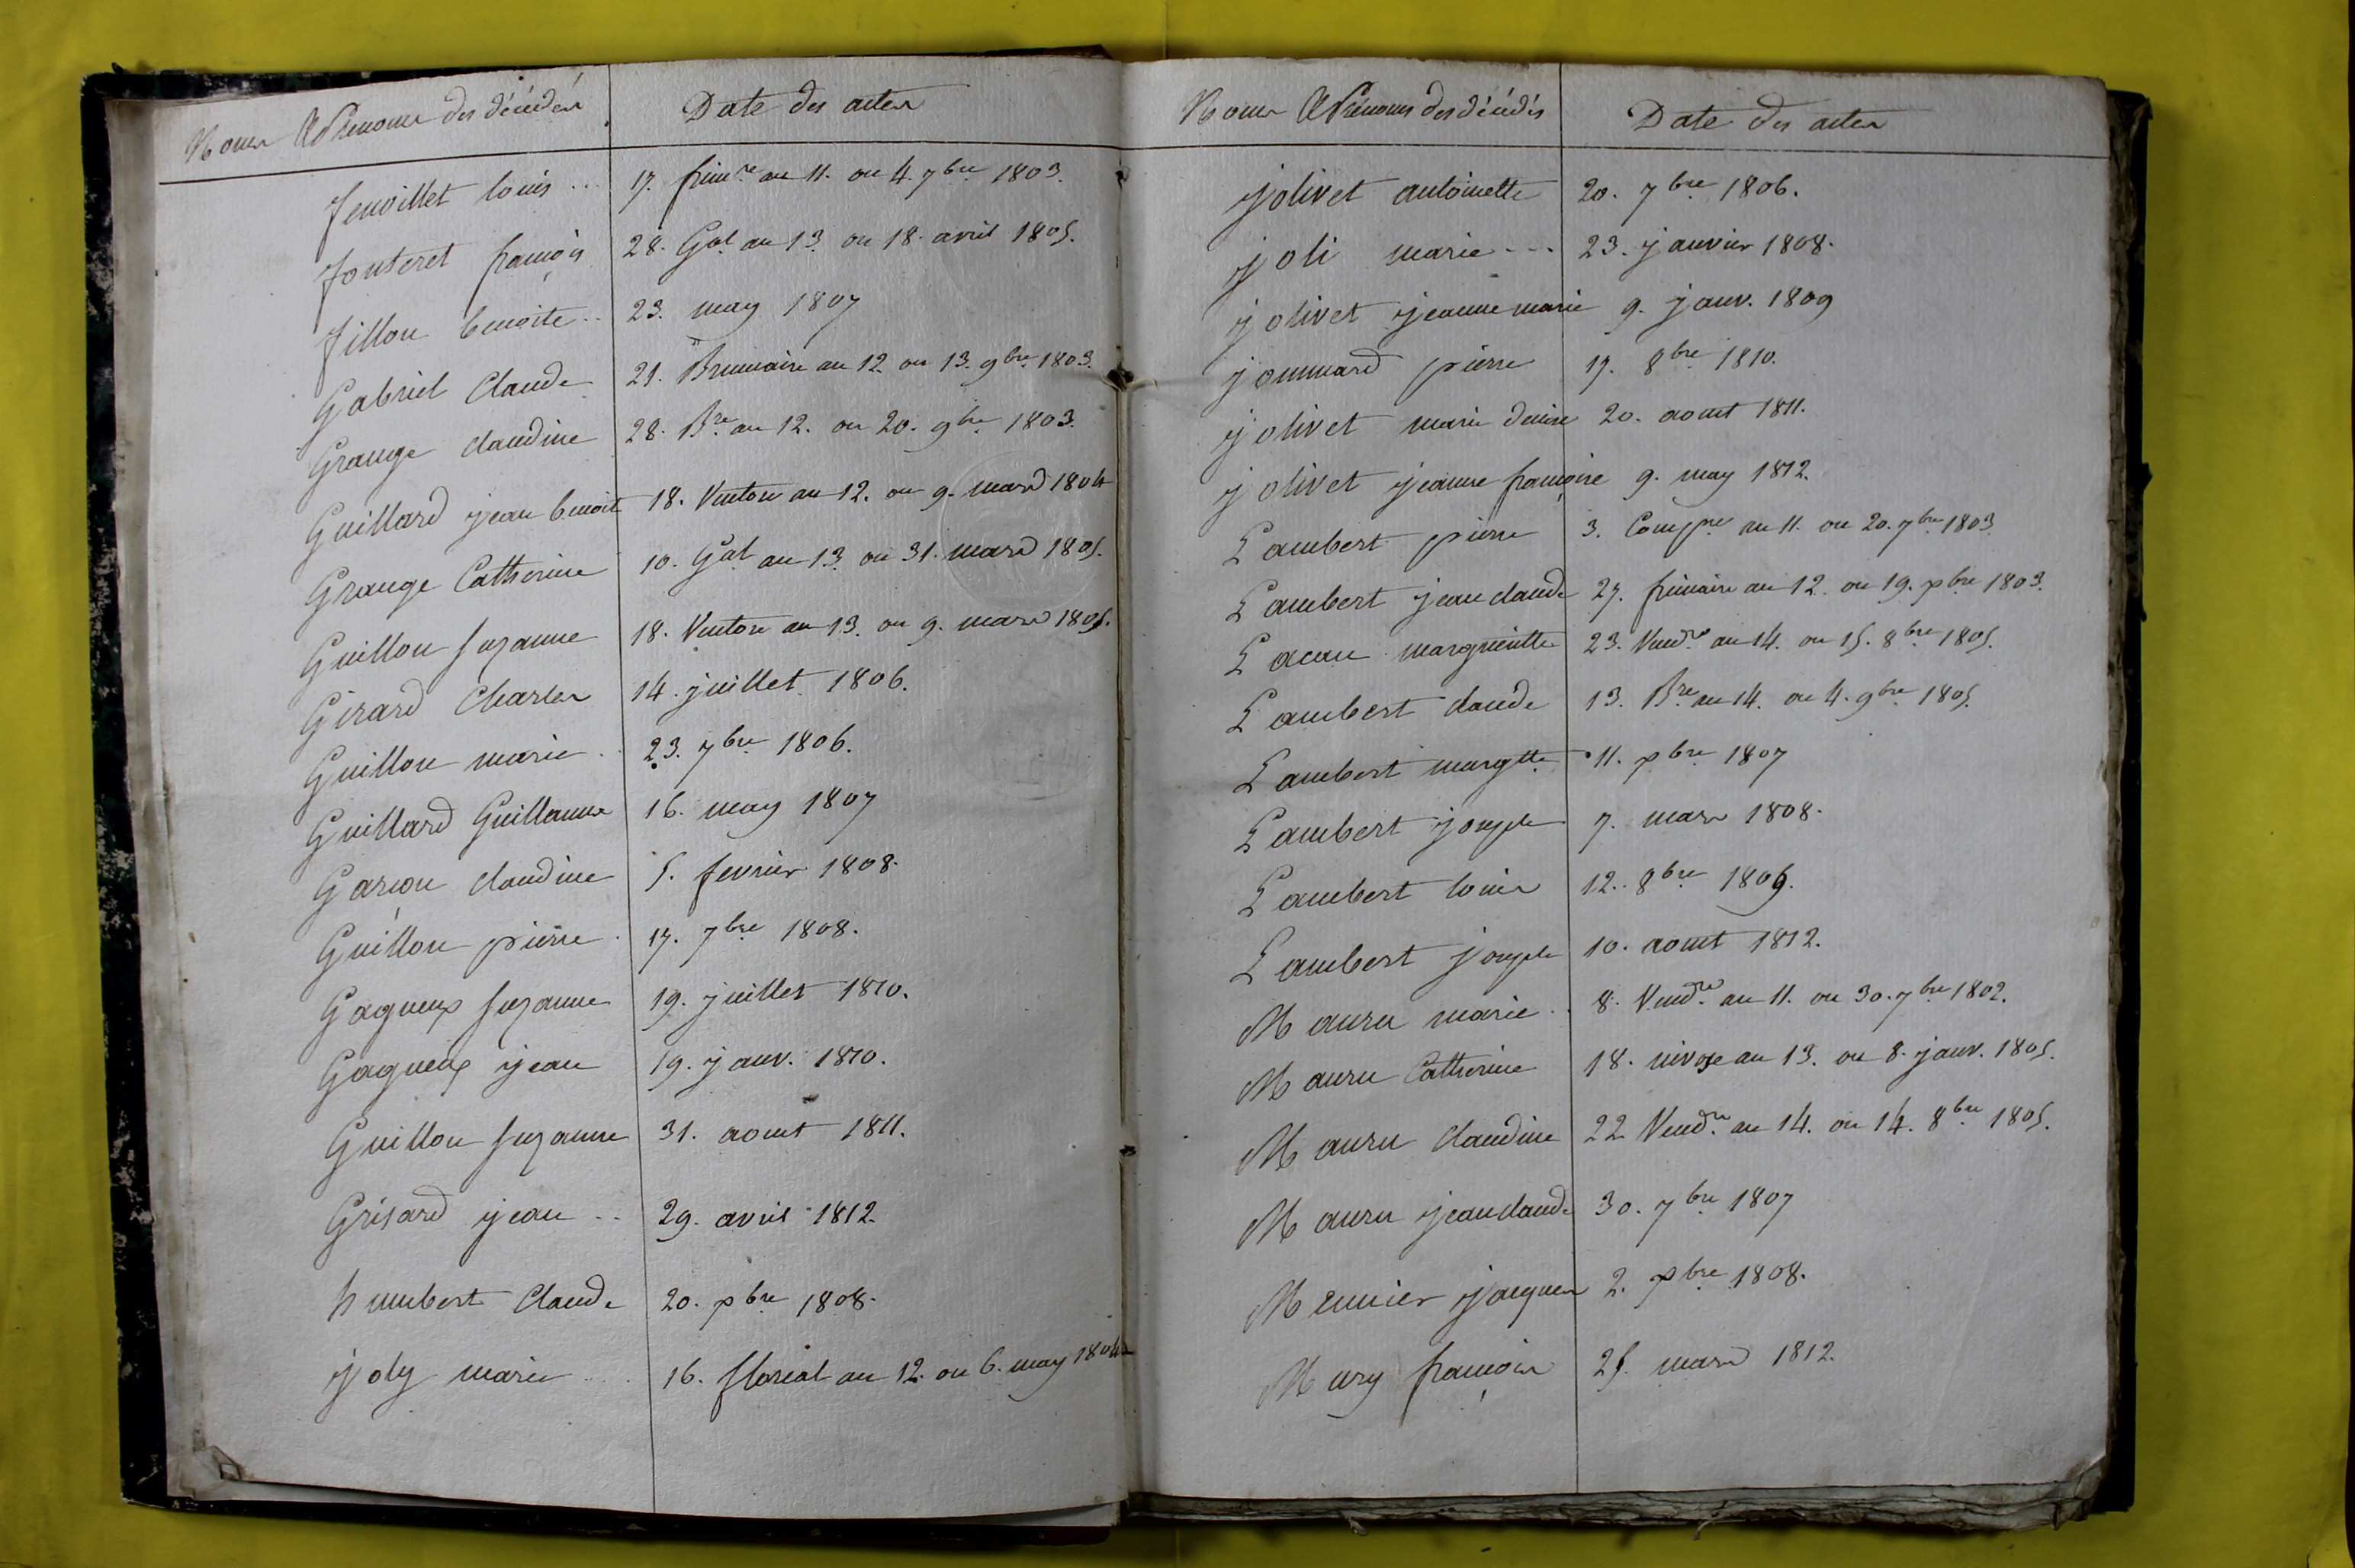 Noms & Prénoms des décédés Date des actes
fenoillet louis ... 17. frim.re an 11. ou 4. 7bre 1803.
fonteret françois 28. G.al an 13 ou 18. avril 1805.
fillon benoite .. 23. may 1807
Gabriel Claude 21. Brumaire an 12 ou 13. 9bre 1803.
Grange claudine 28. B.re an 12. ou 20. 9bre 1803.
Guillard jean benoit 18. Ventose an 12. ou 9. mars 1804
Grange Catherine 10. G.al an 13 ou 31. mars 1805.
Guillon suzanne 18. Ventose an 13. ou 9. mars 1805.
Girard Charles 14. juillet 1806.
Guillon marie . 23. 7bre 1806.
Guillard Guillaume 16. may 1807
Garçon claudine 5. fevrier 1808.
Guillon pierre . 17. 7bre 1808.
Gagneux suzanne 19. juillet 1810.
Gagneux jean 19. janv. 1810.
Guillon suzanne 31. aout 1811.
Grisard jean .. 29. avril 1812.
humbert Claude 20. xbre 1808.
joly marie ... 16. floreal an 12. ou 6. may 1804
Noms & Prénoms des décédés Date des actes
jolivet antoinette 20. 7bre 1806.
joli marie --- 23. janvier 1808.
jolivet jeanne marie 9. janv. 1809
jommard pierre 17. 8bre 1810.
jolivet marie denise 20. aout 1811.
jolivet jeanne françoise 9. may 1812.
Lambert pierre 3. Comp.re an 11. ou 20. 7bre 1803
Lambert jean claude 27. frimaire an 12. ou 19. xbre 1803.
Lacan margueritte 23. Vend.re an 14. ou 15. 8bre 1805.
Lambert claude 13. B.re an 14. ou 4. 9bre 1805.
Lambert margtte 11. xbre 1807
Lambert joseph 7. mars 1808.
Lambert louis 12. 8bre 1809.
Lambert joseph 10. aout 1812.
Mauru marie .. 8. Vend.re an 11. ou 30. 7bre 1802.
Mauru Catherine 18. nivose an 13. ou 8. janv. 1805.
Mauru claudine 22 Vend.re an 14. ou 14. 8bre 1805.
Mauru jean claude 30. 7bre 1807
Meunier jacques 2. xbre 1808.
Mury françois 25. mars 1812.